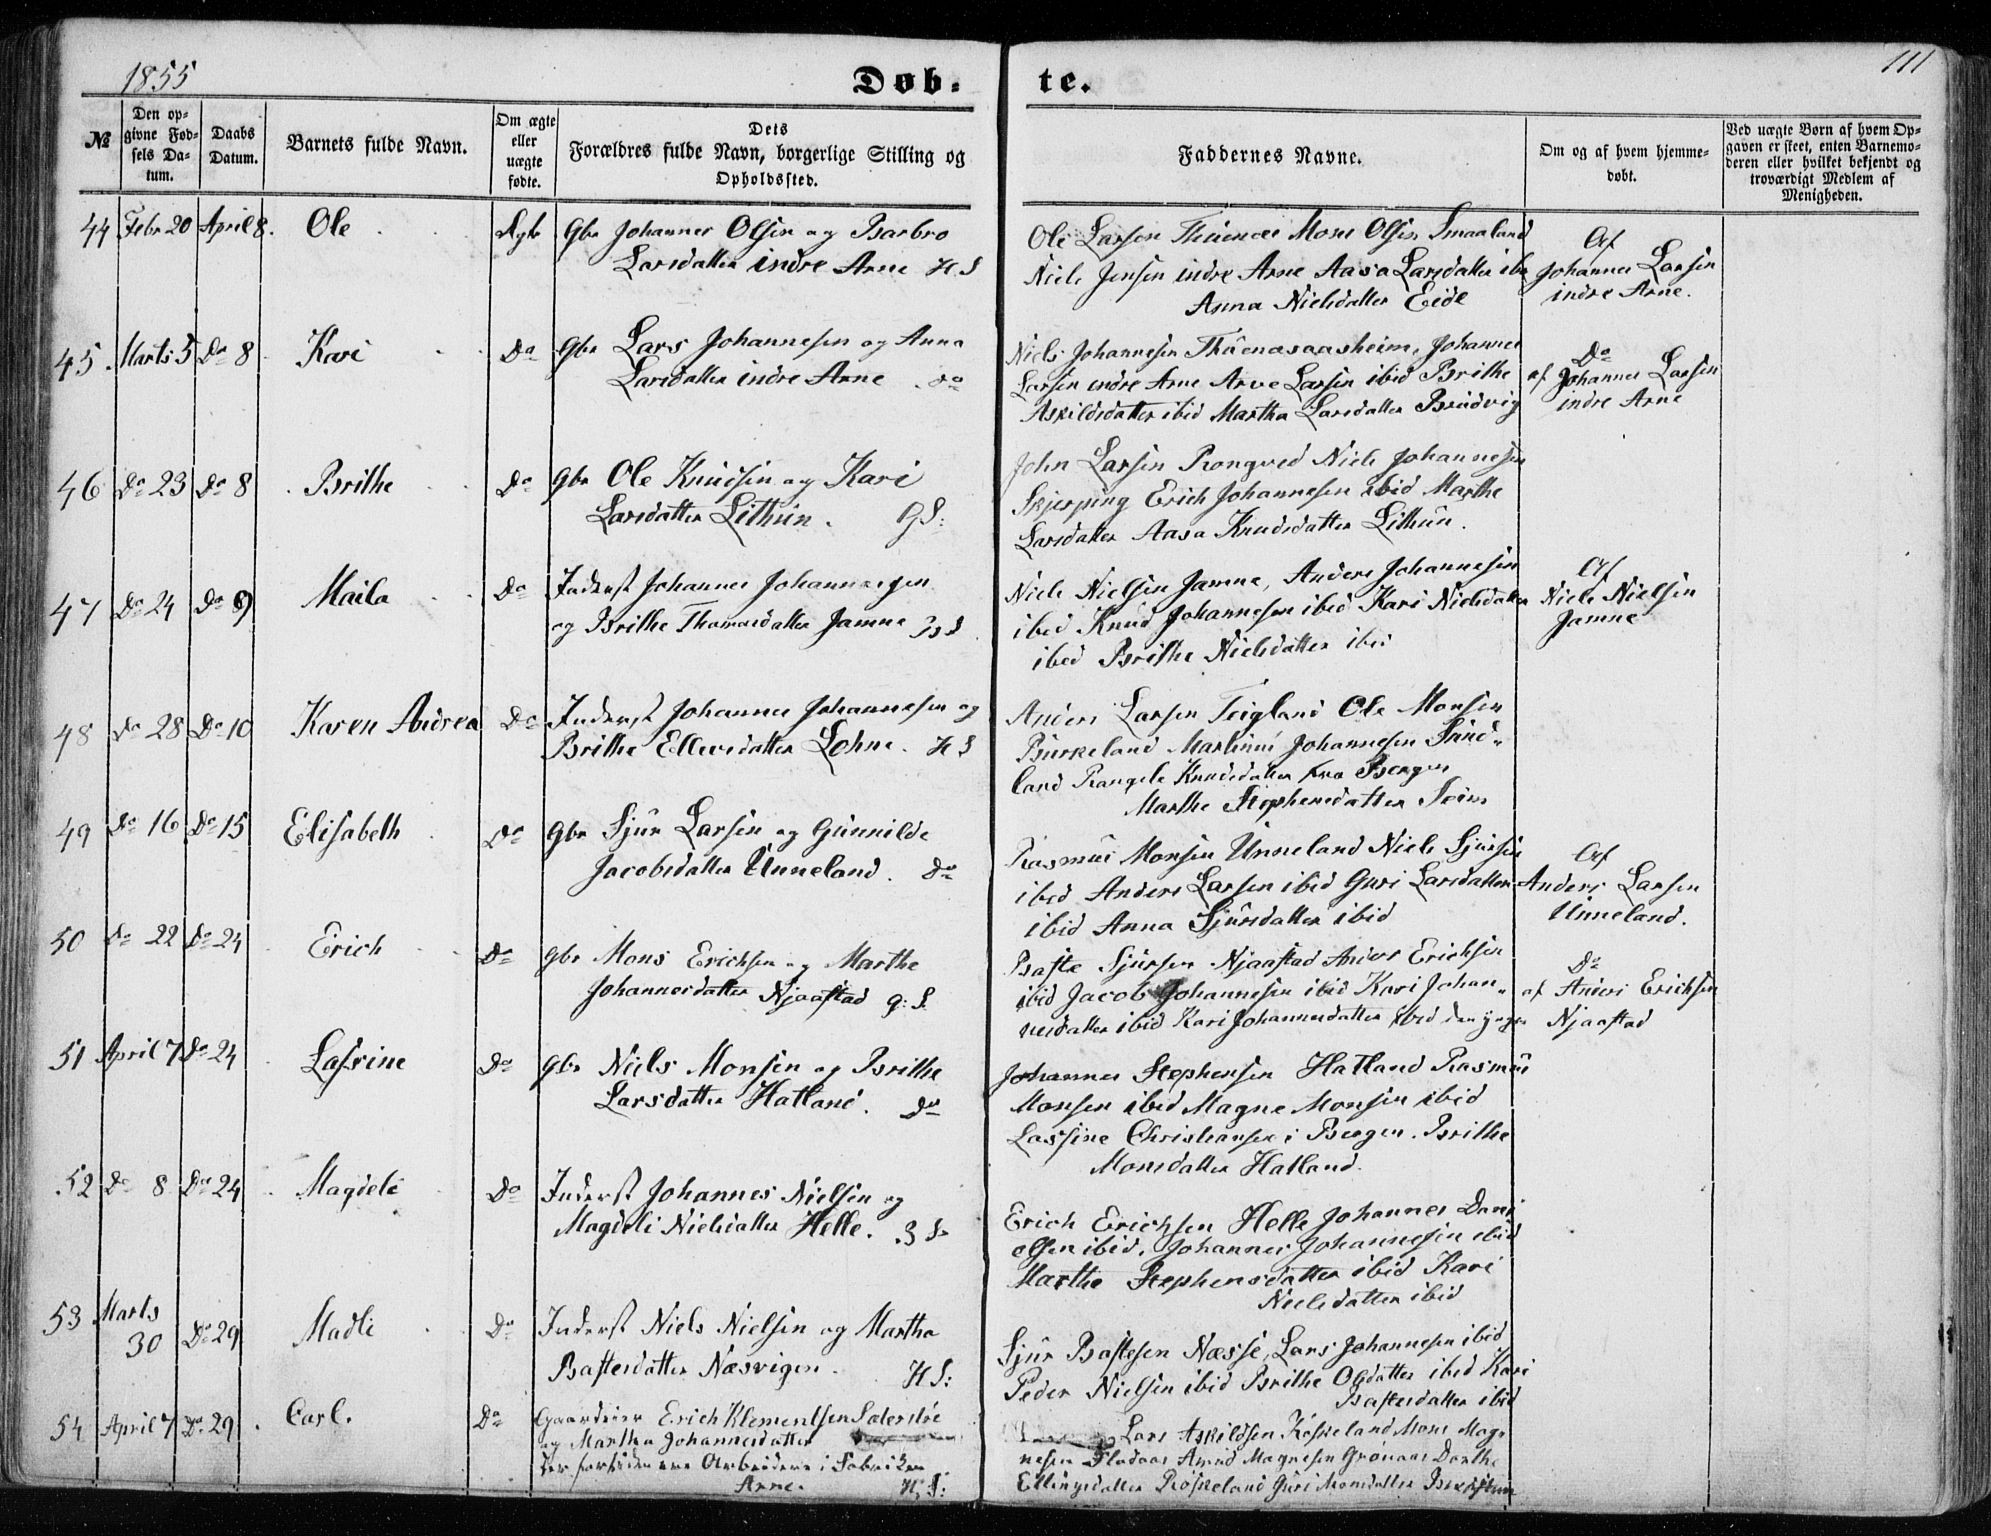 1855
Døb-
te.
111
№
Den op-
givne Fød-
sels Da-
tum.
Daabs
Datum.
Barnets fulde Navn.
Om ægte
eller
uægte
fødte.
Dets
Forældres fulde Navn, borgerlige Stilling og
Opholdssted.
Faddernes Navne.
Om og af hvem hjemme-
døbt.
Ved uægte Børn af hvem Op-
gaven er skeet, enten Barnemo-
deren eller hvilket bekjendt og
troværdigt Medlem af
Menigheden.
44 Febr 20 April 8. Ole
Gbr Johannes Olsen og Barbro
Larsdatter indre Arne H S
Ole Larsen Mons Olsen Smaaland
Niels Jensen indre Arne Aasa Larsdatter
Anna Nielsdatter Eide
Af
Johannes Larsen
indre Arne.
45 Marts 5 Do 8 Kari Do
Gbr Lars Johannesen og Anna
Larsdatter indre Arne Do
Niels Johannesen Johannes
Larsen indre Arne Arve Larsen ibid Brithe
Askildsdatter ibid Martha Larsdatter Brudvig
Do
af Johannes Larsen
indre Arne
46 Do 23 Do 8 Brithe Do
Gbr Ole Knudsen og Kari
Larsdatter Lithun. G S:
John Larsen Rongved Niels Johannesen
Skjerping Erich Johannesen ibid Marthe
Larsdatter Aasa Knudsdatter Lithun.
47 Do 24 Do 9 Maila Do
Inderst Johannes Johannesen
og Brithe Thomasdatter Jamne
Niels Nielsen Jamne, Anders Johannesen
ibid Knud Johannesen ibid Kari Nielsdatter
ibid Brithe Nielsdatter ibid
Af
Niels Nielsen
Jamne
48 Do 28 Do 10 Karen Andrea Do
Inderst Johannes Johannesen og
Brithe Ellevsdatter Lohne. H S
Anders Larsen Teigland Ole Monsen
Burkeland Martinus Johannesen Sund-
land Rangele Knudsdatter fra Bergen
Marthe Stephensdatter Seim
49 Do 16 Do 15 Elisabeth Do
Gbr Sjur Larsen og Gunnilde
Jacobsdatter Unneland. Do
Rasmus Monsen Unneland Niels Sjursen
ibid Anders Larsen ibid Guri Larsdatter
ibid Anna Sjursdatter ibid
Af
Anders Larsen
Unneland.
50 Do 22 Do 24 Erich Do
Gbr Mons Erichsen og Marthe
Johannesdatter Njaastad G: S.
Baste Sjursen Njaastad Anders Erichsen
ibid Jacob Johannesen ibid Kari Johan-
nesdatter ibid Kari Johannesdatter ibid den yngre
Do
af Anders Erichsen
Njaastad
51 April 7 Do 24 Lassine Do
Gbr Niels Monsen og Brithe
Larsdatter Hatland. Do
Johannes Stephensen Hatland Rasmus
Monsen ibid Magne Monsen ibid
Lassine Christiansen i Bergen. Brithe
Monsdatter Hatland.
52 Do 8 Do 24 Magdeli Do
Inderst Johannes Nielsen og
Magdeli Nielsdatter Helle.
Erich Erichsen Helle Johannes Dani
elsen ibid, Johannes Johannesen ibid
Marthe Stephensdatter ibid Kari
Nielsdatter ibid
53 Marts
30 Do 29 Madli Do
Inderst Niels Nielsen og Martha
Bastesdatter Næsvigen. H S:
Sjur Bastesen Næsse, Lars Johannesen ibid
Peder Nielsen ibid Brithe Olsdatter ibid Kari
Bastesdatter ibid
54 April 7 Do 29 Carl. Do
Gaardeier Erich Klementsen
og Martha Johannesdatter
Arbeidere i Fabriken
Arne. H. S:
Lars Askildsen Røskeland Mons Mag-
nesen Amund Magnesen Dorthe
Ellingsdatter Røskeland Guri Monsdatter